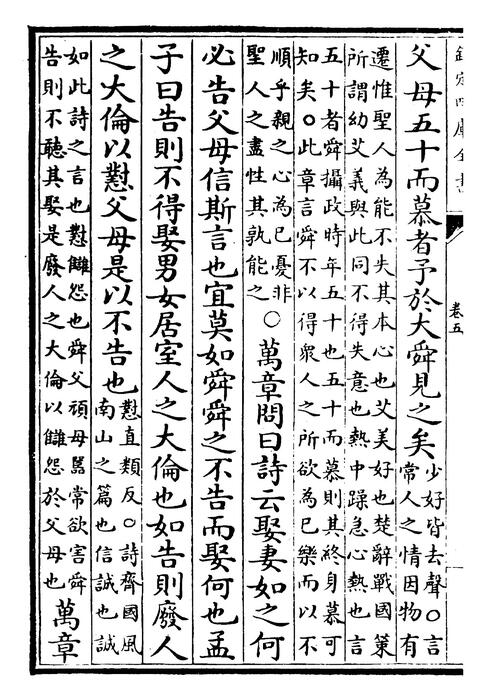 欽定四庫全書
卷五
父母五十而慕者予於大舜見之矣少好皆去聲○言常人之情因物有
遷惟聖人為能不失其本心也艾美好也楚辭戰國策所謂幼艾義與此同不得失意也熱中躁急心熱也言
五十者舜攝政時年五十也五十而慕則其終身慕可知矣○此章言舜不以得衆人之所欲為已樂而以不
順乎親之心為已憂非聖人之盡性其孰能之○萬章問曰詩云娶妻如之何
必告父母信斯言也宜莫如舜舜之不告而娶何也孟
子曰告則不得娶男女居室人之大倫也如告則廢人
之大倫以懟父母是以不告也懟直類反○詩齊國風南山之篇也信誠也誠
如此詩之言也懟讎怨也舜父頑母嚚常欲害舜告則不聽其娶是廢人之大倫以讎怨於父母也萬章